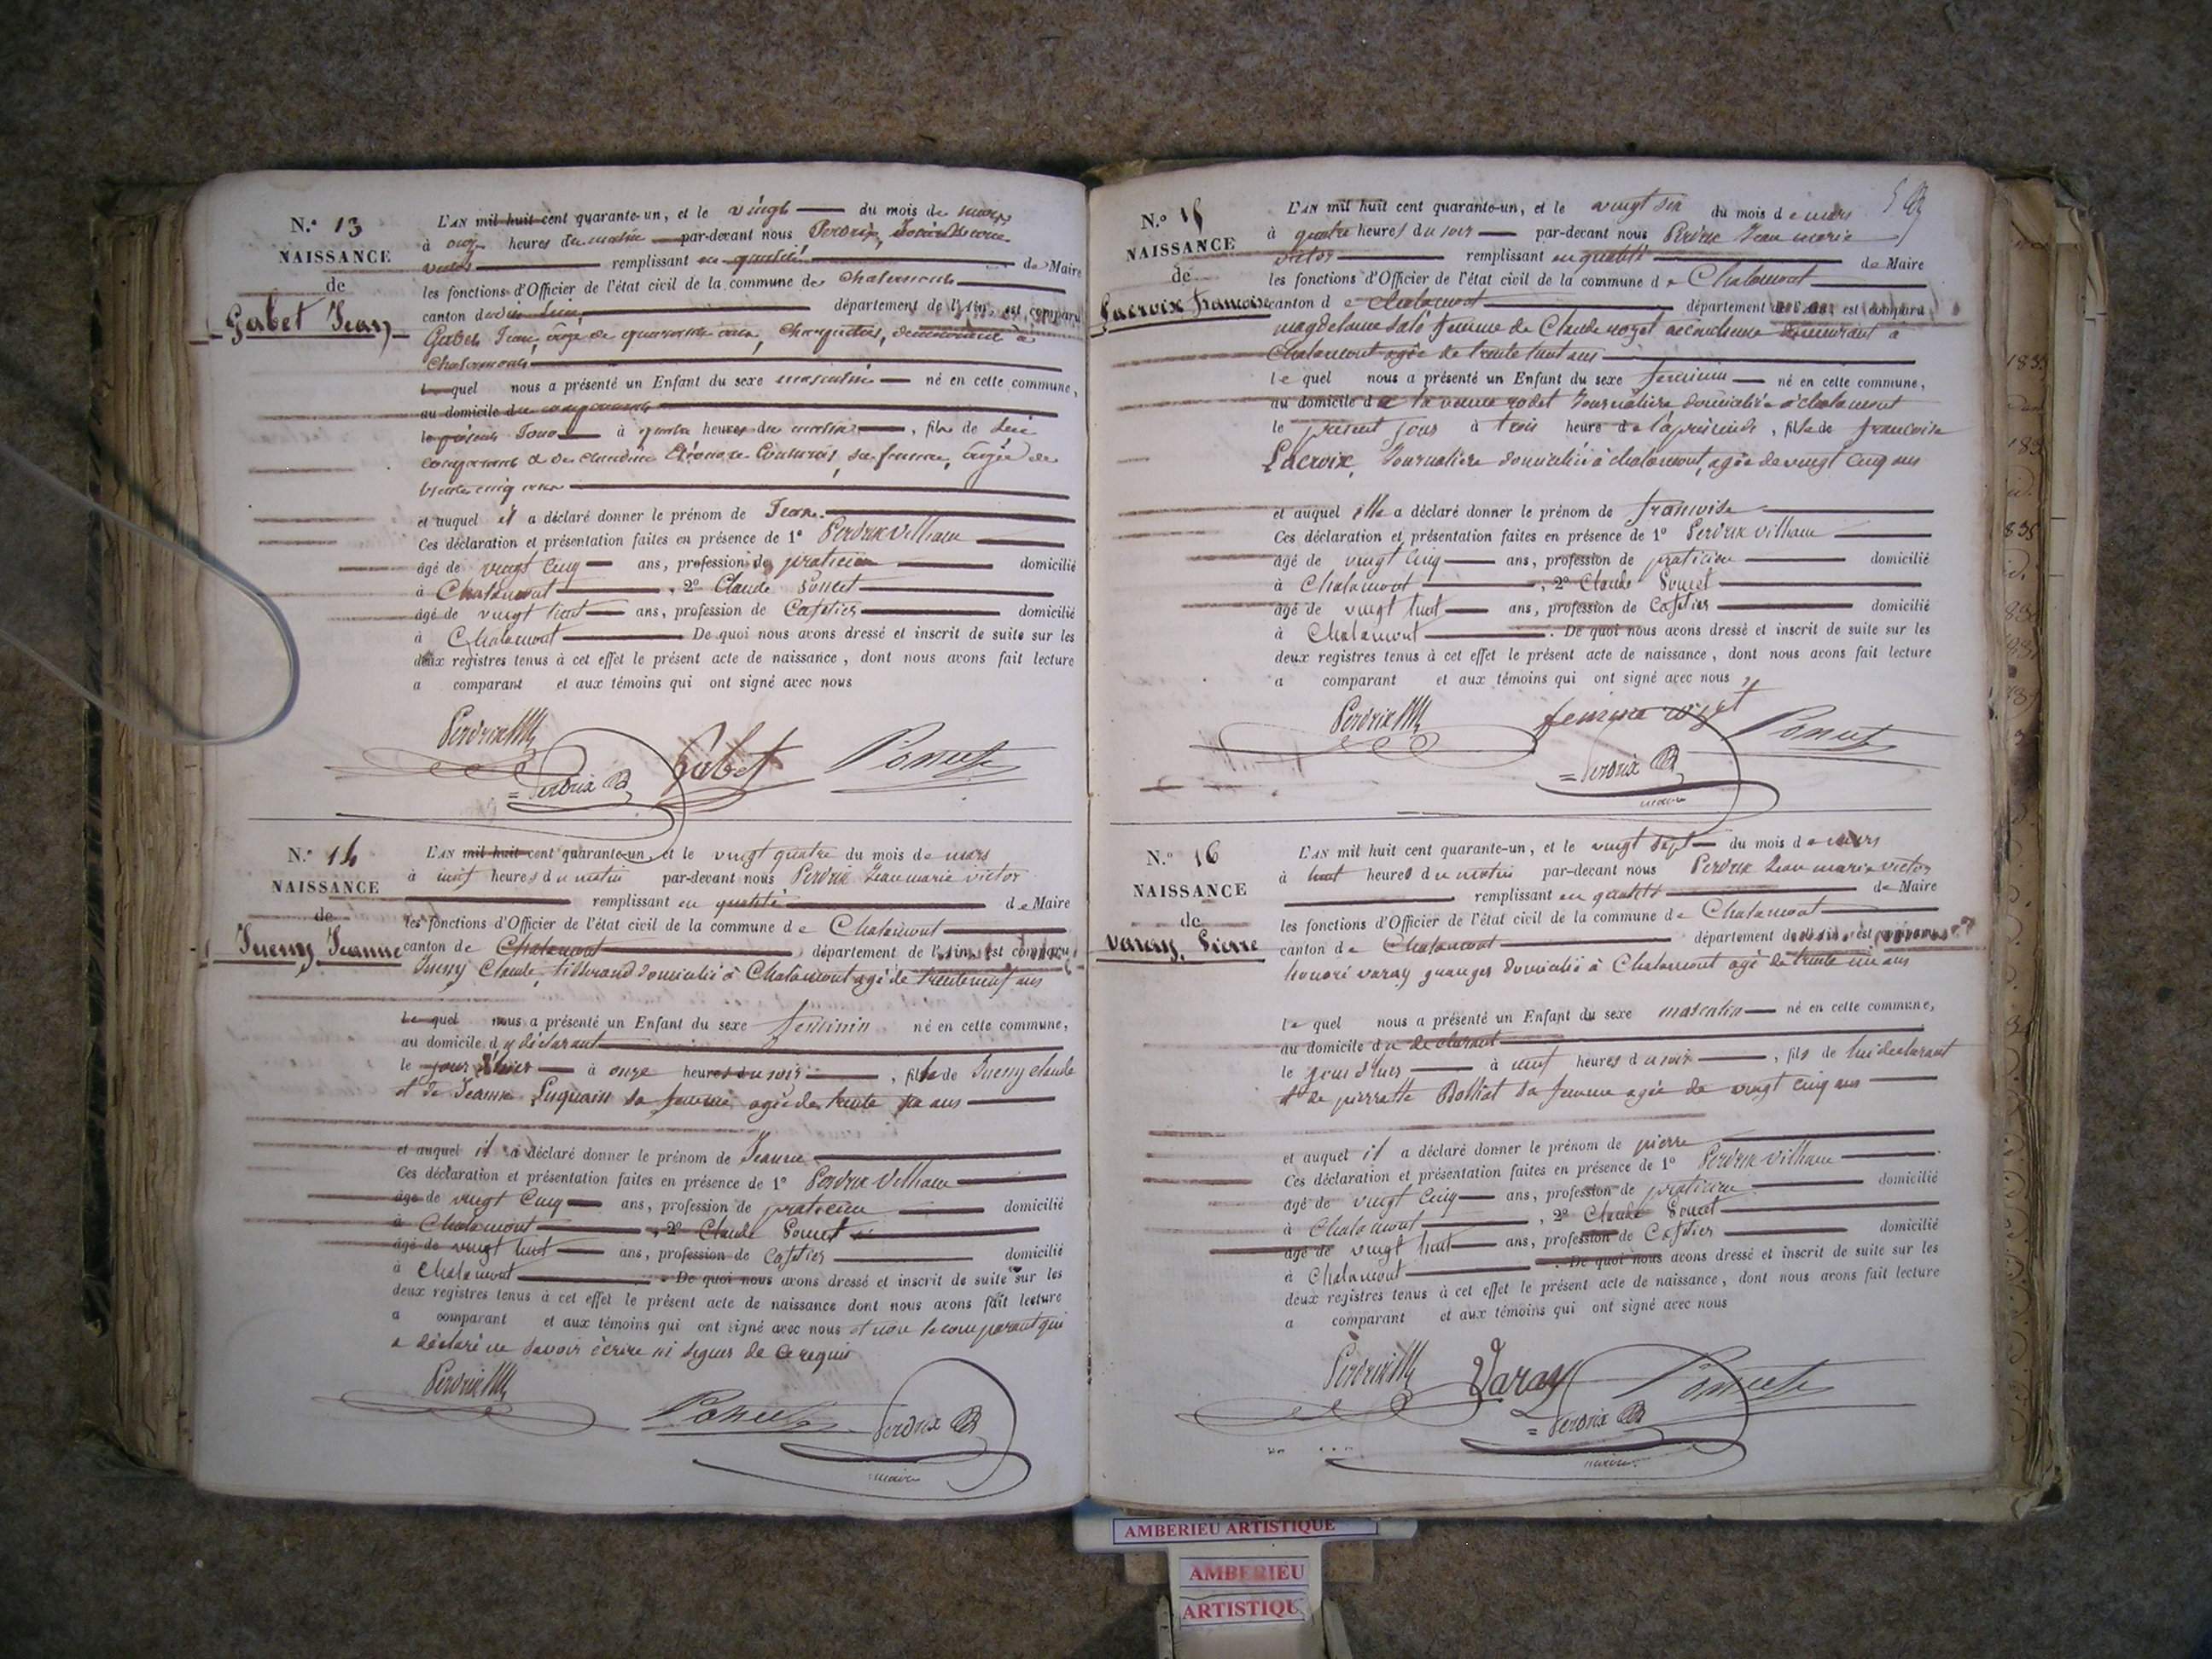 N.° 13
NAISSANCE
de
Gabet Jean
L'AN mil huit cent quarante-un, et le vingt du mois de mars
à onze heures du matin par-devant nous Perdrix, Jean Marie
victor remplissant en qualité de Maire
les fonctions d'Officier de l'état civil de la commune de Chalamont
canton du dit lieu, département de l'ain, est comparu
Gabet Jean, âgé de quarante ans, Charpentier, demeurant à
Chalamont
lequel nous a présenté un Enfant du sexe masculin né en cette commune,
au domicile du comparant
le présent Jour à quatre heures du matin, fils de Lui
comparant et de claudine Eléonore, sa femme, âgée de
trente cinq ans
et auquel il a déclaré donner le prénom de Jean.
Ces déclaration et présentation faites en présence de 1° Perdrix villiam
âgé de vingt cinq ans, profession de praticien domicilié
à Chalamont, 2° Claude Poncet
âgé de vingt huit ans, profession de Cafetier domicilié
à Chalamont De quoi nous avons dressé et inscrit de suite sur les
deux registres tenus à cet effet le présent acte de naissance, dont nous avons fait lecture
a comparant et aux témoins qui ont signé avec nous
Perdrix Gabet Poncet
Perdrix
N.° 14
NAISSANCE
de
Jueny Jeanne
L'AN mil huit cent quarante-un, et le vingt quatre du mois de mars
à neuf heures du matin par-devant nous Perdrix Jean marie victor
remplissant en qualité de Maire
les fonctions d'Officier de l'état civil de la commune de Chalamont
canton de Chalamont département de l'ain, est comparu
Jueny Claude, tisserand domicilié à Chalamont agé de trente neuf ans
lequel nous a présenté un Enfant du sexe feminin né en cette commune,
au domicile du déclarant
le jour d'hier à onze heures du soir, fille de Jueny claude
et de Jeanne Luquain sa femme agée de trente six ans
et auquel il a déclaré donner le prénom de Jeanne
Ces déclaration et présentation faites en présence de 1° Perdrix Villiam
âgé de vingt Cinq ans, profession de praticien domicilié
à Chalamont, 2° Claude Poncet
âgé de vingt huit ans, profession de Cafetier domicilié
à Chalamont. De quoi nous avons dressé et inscrit de suite sur les
deux registres tenus à cet effet le présent acte de naissance dont nous avons fait lecture
a comparant et aux témoins qui ont signé avec nous et non le comparant qui
a déclaré ne savoir écrire ni signer de ce requis
Perdrix
Poncet Perdrix
maire
N.° 15
NAISSANCE
de
Lacroix francoise
L'AN mil huit cent quarante-un, et le vingt six du mois de mars
à quatre heures du soir par-devant nous Perdrix Jean marie
victor remplissant en qualité de Maire
les fonctions d'Officier de l'état civil de la commune de Chalamont
canton de chalamont département de l'ain est comparu
magdelaine Salé femme de Claude royet accoucheuse demeurant à
Chalamont agée de trente huit ans
lequel nous a présenté un Enfant du sexe feminin né en cette commune,
au domicile de la veuve rodet Journalière domiciliée à chalamont
le present jour à trois heure de l'après midi, fille de francoise
Lacroix, Journalière domiciliée à chalamont, agée de vingt cinq ans
et auquel elle a déclaré donner le prénom de francoise
Ces déclaration et présentation faites en présence de 1° Perdrix villiam
âgé de vingt cinq ans, profession de praticien domicilié
à Chalamont, 2° Claude Poncet
âgé de vingt huit ans, profession de Cafetier domicilié
à Chalamont. De quoi nous avons dressé et inscrit de suite sur les
deux registres tenus à cet effet le présent acte de naissance, dont nous avons fait lecture
a comparant et aux témoins qui ont signé avec nous
Perdrix femme royet Poncet
Perdrix
maire
N.° 16
NAISSANCE
de
Varay, Pierre
L'AN mil huit cent quarante-un, et le vingt sept du mois de mars
à huit heures du matin par-devant nous Perdrix Jean marie victor
remplissant en qualité de Maire
les fonctions d'Officier de l'état civil de la commune de Chalamont
canton de Chalamont département de l'ain, est comparu
honoré varay granger domicilié à Chalamont agé de trente un ans
lequel nous a présenté un Enfant du sexe masculin né en cette commune,
au domicile du declarant
le jour d'hier à neuf heures du soir, fils de lui declarant
et de pierrette Bolliat sa femme agée de vingt cinq ans
et auquel il a déclaré donner le prénom de pierre
Ces déclaration et présentation faites en présence de 1° Perdrix Villiam
âgé de vingt cinq ans, profession de praticien domicilié
à Chalamont, 2° Claude Poncet
âgé de vingt huit ans, profession de Cafetier domicilié
à Chalamont. De quoi nous avons dressé et inscrit de suite sur les
deux registres tenus à cet effet le présent acte de naissance, dont nous avons fait lecture
a comparant et aux témoins qui ont signé avec nous
Perdrix Varay Poncet
Perdrix
maire
AMBERIEU ARTISTIQUE
AMBERIEU
ARTISTIQU